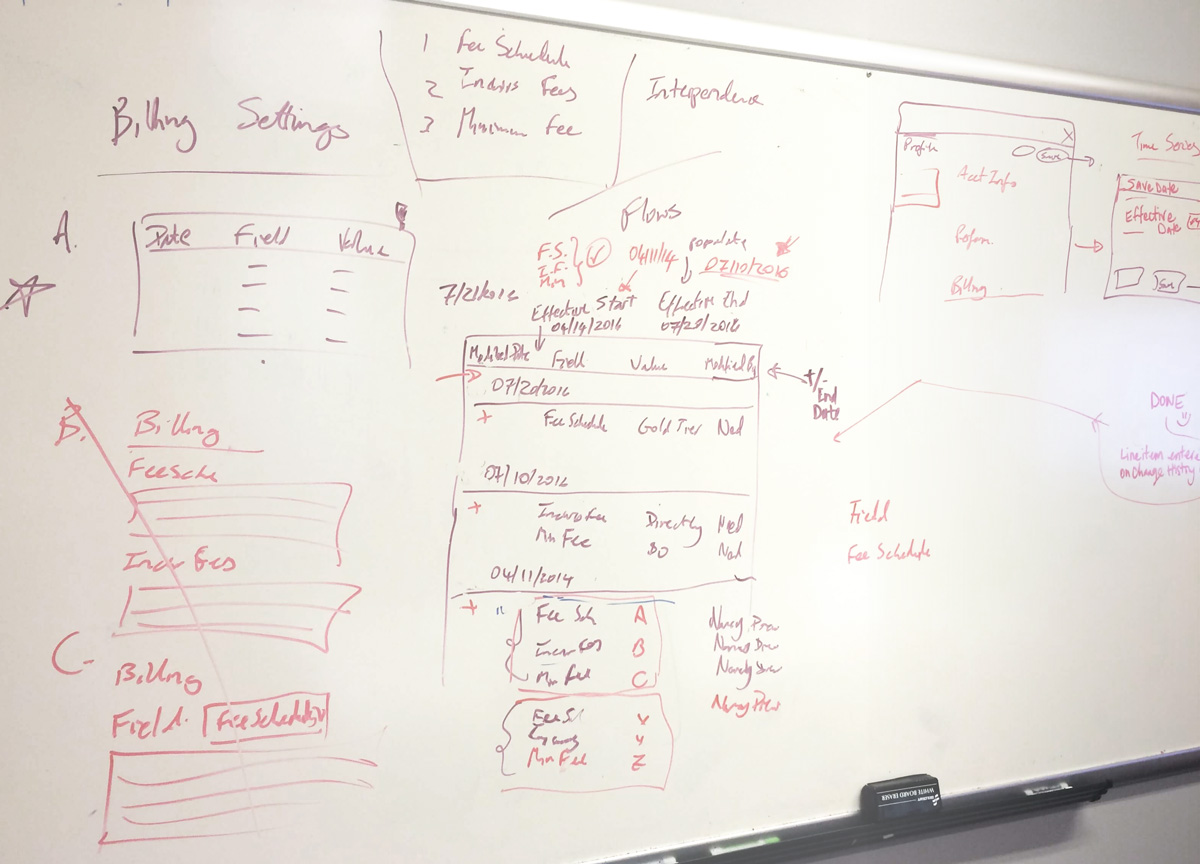 Billing Settings
1 Fee Schedule
2 Fees
3 Minimum Fee
A.
Date Field Value
B.
Billing
Fee Sche
Incur Fees
C-
Billing
Field: Fee Schedule
Flows
F.S. 04/11/14 populate 07/10/2016
I.F.
Min
7/21/2016
Effective Start Effective End
04/19/2016 07/28/2016
Modified Date Field Value Modified By
+/-
End
Date
07/20/2016
+ Fee Schedule Gold Tier Ned
07/10/2016
+ Fee Directly Ned
Min Fee BD Ned
04/11/2014
+ " Fee Sch A
B
Min Fee C
Fee Sch X
Y
Min Fee Z
Profile
X
Save
Acct Info
Perform.
Billing
Time Series
SAVE DATE
Effective
Date
Save
Field
Fee Schedule
DONE
Line item entere
on Change History
WHITE BOARD ERASER